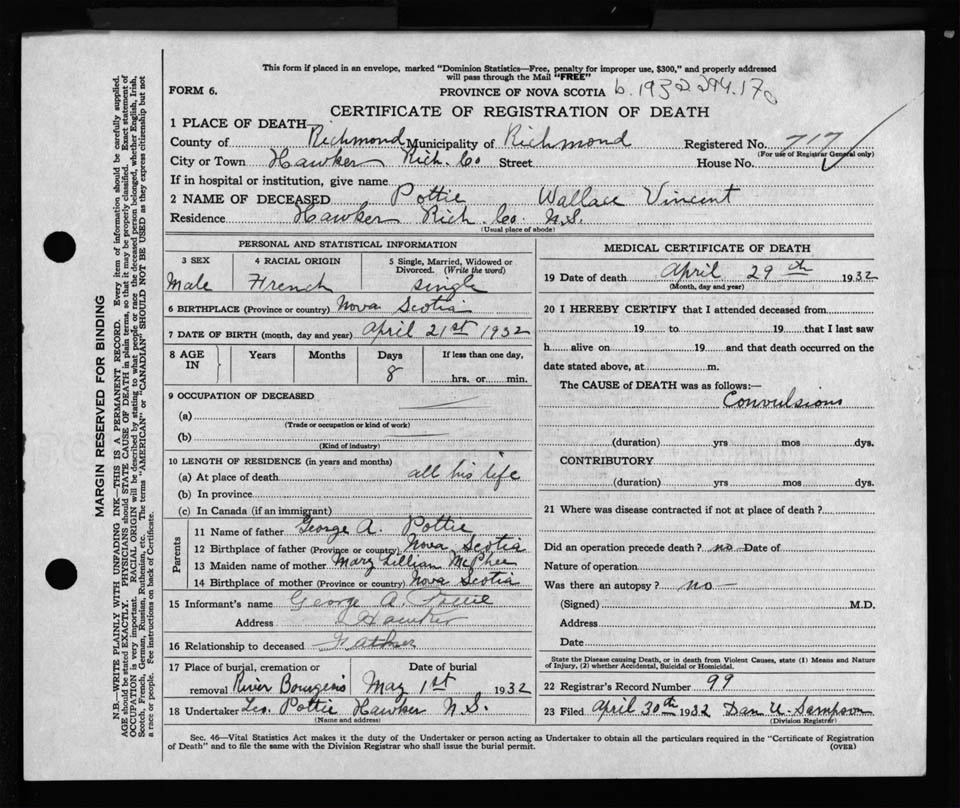 This form if placed in an envelope, marked "Dominion Statistics—Free, penalty for improper use, $300," and properly addressed
will pass through the Mail "FREE"
FORM 6.
PROVINCE OF NOVA SCOTIA b. 1932
CERTIFICATE OF REGISTRATION OF DEATH
1 PLACE OF DEATH—
County of Richmond Municipality of Richmond Registered No. 717
(For use of Registrar General only)
City or Town Hawker Rich. Co Street House No.
If in hospital or institution, give name
2 NAME OF DECEASED Pottie Wallace Vincent
Residence Hawker Rich. Co. N.S.
(Usual place of abode)
PERSONAL AND STATISTICAL INFORMATION
3 SEX
Male
4 RACIAL ORIGIN
French
5 Single, Married, Widowed or
Divorced. (Write the word)
single
6 BIRTHPLACE (Province or country) Nova Scotia
7 DATE OF BIRTH (month, day and year) April 21st 1932
8 AGE IN Years Months Days If less than one day,
8 hrs. or min.
9 OCCUPATION OF DECEASED
(a)
(Trade or occupation or kind of work)
(b)
(Kind of industry)
10 LENGTH OF RESIDENCE (in years and months)
(a) At place of death all his life
(b) In province
(c) In Canada (if an immigrant)
Parents
11 Name of father George A. Pottie
12 Birthplace of father (Province or country) Nova Scotia
13 Maiden name of mother Mary Lillian McPhee
14 Birthplace of mother (Province or country) Nova Scotia
15 Informant's name George A. Pottie
Address Hawker
16 Relationship to deceased Father
17 Place of burial, cremation or Date of burial
removal River Bourgeois May 1st 1932
18 Undertaker Leo. Pottie Hawker N.S.
(Name and address)
MEDICAL CERTIFICATE OF DEATH
19 Date of death April 29th 1932
(Month, day and year)
20 I HEREBY CERTIFY that I attended deceased from
19 to 19 that I last saw
h alive on 19 and that death occurred on the
date stated above, at m.
The CAUSE of DEATH was as follows:—
Convulsions
(duration) yrs mos dys.
CONTRIBUTORY
(duration) yrs mos dys.
21 Where was disease contracted if not at place of death?
Did an operation precede death? no Date of
Nature of operation
Was there an autopsy? no
(Signed) M.D.
Address
Date
State the Disease causing Death, or in death from Violent Causes, state (1) Means and Nature
of Injury, (2) whether Accidental, Suicidal or Homicidal.
22 Registrar's Record Number 99
23 Filed April 30th 1932 Dan U. Sampson
(Division Registrar)
Sec. 46—Vital Statistics Act makes it the duty of the Undertaker or person acting as Undertaker to obtain all the particulars required in the "Certificate of Registration
of Death" and to file the same with the Division Registrar who shall issue the burial permit.
(OVER)
MARGIN RESERVED FOR BINDING
N.B.—WRITE PLAINLY WITH UNFADING INK—THIS IS A PERMANENT RECORD. Every item of information should be carefully supplied.
AGE should be stated EXACTLY. PHYSICIANS should STATE CAUSE OF DEATH in plain terms, so that it may be properly classified. Exact statement of
OCCUPATION is very important. RACIAL ORIGIN will be described by stating to what people or race the deceased person belonged, whether English, Irish,
Scotch, French, German, Russian, Ruthenian, etc. The terms "AMERICAN" or "CANADIAN" SHOULD NOT BE USED as they express citizenship but not
a race or people. See instructions on back of Certificate.